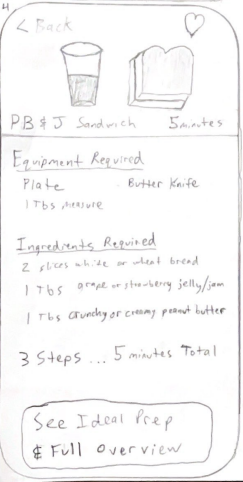 4
< Back
PB & J Sandwich 5 minutes
Equipment Required
Plate Butter Knife
1 Tbs measure
Ingredients Required
2 slices white or wheat bread
1 Tbs grape or strawberry jelly/jam
1 Tbs crunchy or creamy peanut butter
3 Steps ... 5 minutes Total
See Ideal Prep
& Full Overview